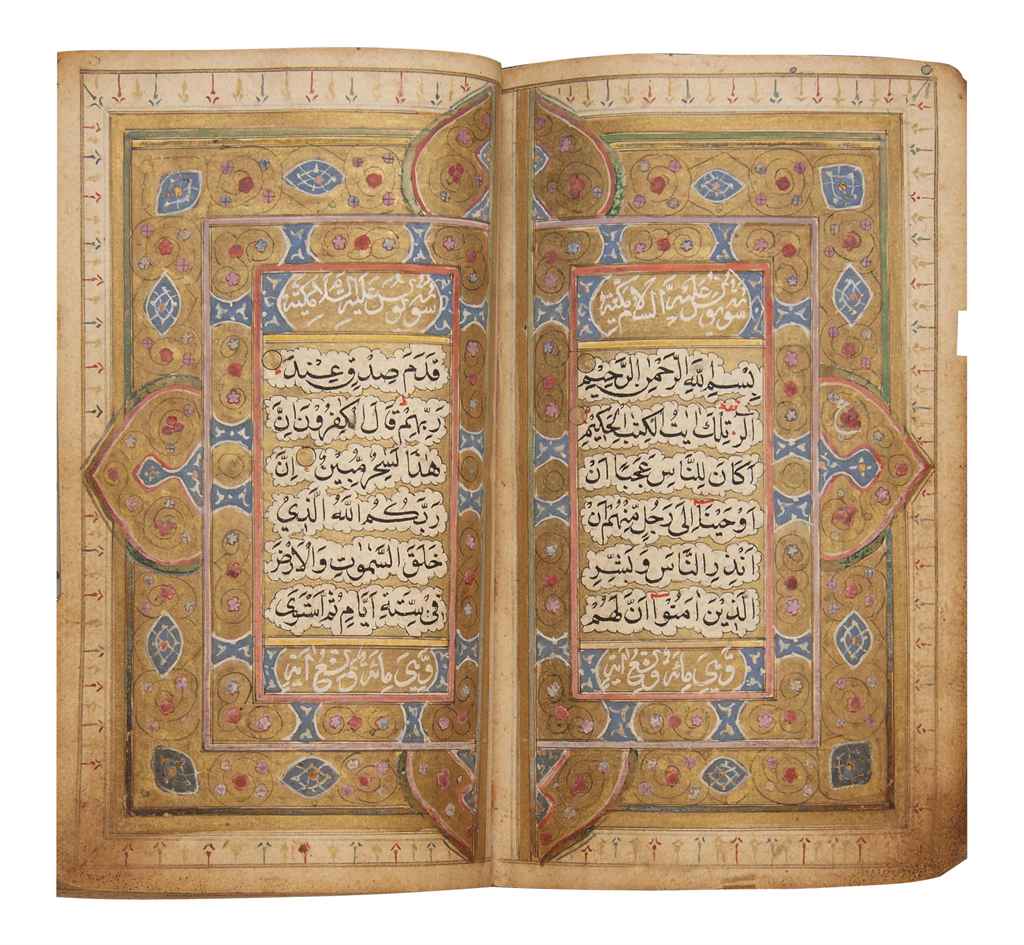 سورة يونس عليه السلام مكية
بِسْمِ اللّٰهِ الرَّحْمٰنِ الرَّحِيْمِ
الٓرٰ تِلْكَ اٰيٰتُ الْكِتٰبِ الْحَكِيْمِ
اَكَانَ لِلنَّاسِ عَجَبًا اَنْ
اَوْحَيْنَآ اِلٰى رَجُلٍ مِّنْهُمْ اَنْ
اَنْذِرِ النَّاسَ وَبَشِّرِ
الَّذِيْنَ اٰمَنُوْٓا اَنَّ لَهُمْ
وهي مائة وتسع اية
سورة يونس عليه السلام مكية
قَدَمَ صِدْقٍ عِنْدَ
رَبِّهِمْ قَالَ الْكٰفِرُوْنَ اِنَّ
هٰذَا لَسٰحِرٌ مُّبِيْنٌ اِنَّ
رَبَّكُمُ اللّٰهُ الَّذِيْ
خَلَقَ السَّمٰوٰتِ وَالْاَرْضَ
فِيْ سِتَّةِ اَيَّامٍ ثُمَّ اسْتَوٰى
وهي مائة وتسع اية